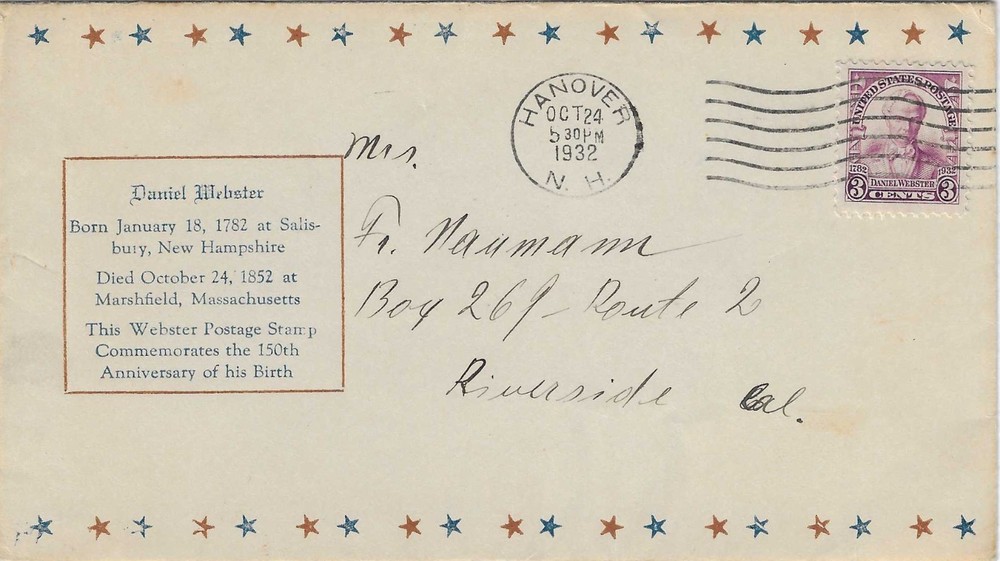 HANOVER
OCT 24
5 30 PM
1932
N. H.
UNITED STATES POSTAGE
1782 1932
DANIEL WEBSTER
3 CENTS 3
Daniel Webster
Born January 18, 1782 at Salis-
bury, New Hampshire
Died October 24, 1852 at
Marshfield, Massachusetts
This Webster Postage Stamp
Commemorates the 150th
Anniversary of his Birth
Mrs.
Fr. Naumann
Box 269 - Route 2
Riverside Cal.